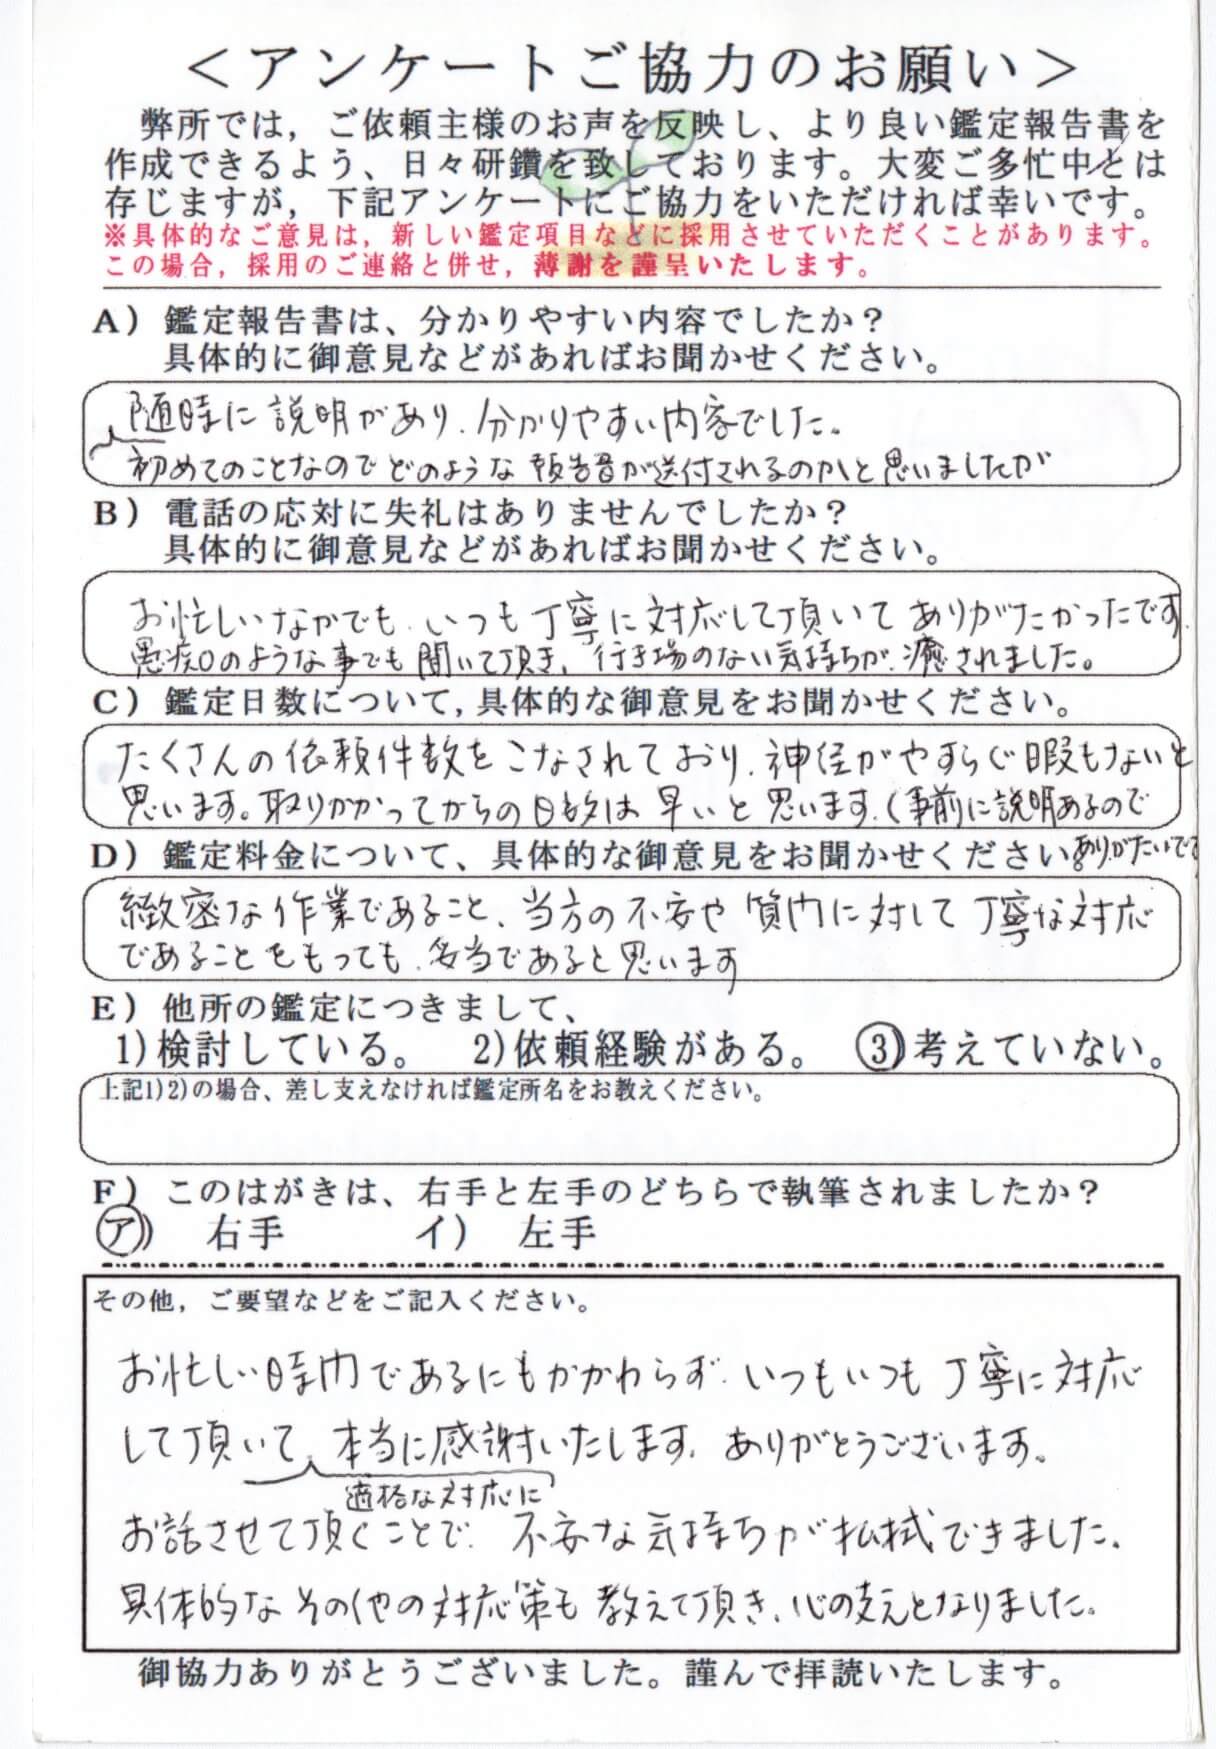 ＜アンケートご協力のお願い＞
弊所では，ご依頼主様のお声を反映し、より良い鑑定報告書を
作成できるよう、日々研鑽を致しております。大変ご多忙中とは
存じますが，下記アンケートにご協力をいただければ幸いです。
※具体的なご意見は，新しい鑑定項目などに採用させていただくことがあります。
この場合，採用のご連絡と併せ，薄謝を謹呈いたします。
A）鑑定報告書は、分かりやすい内容でしたか？
具体的に御意見などがあればお聞かせください。
随時に説明があり、分かりやすい内容でした。
初めてのことなのでどのような報告書が送付されるのかと思いましたが
B）電話の応対に失礼はありませんでしたか？
具体的に御意見などがあればお聞かせください。
お忙しいなかでも、いつも丁寧に対応して頂いてありがたかったです。
愚痴のような事でも聞いて頂き、行き場のない気持ちが、癒されました。
C）鑑定日数について，具体的な御意見をお聞かせください。
たくさんの依頼件数をこなされており、神経がやすらぐ暇もないと
思います。取りかかってからの日数は早いと思います。（事前に説明あるので
ありがたいです
D）鑑定料金について、具体的な御意見をお聞かせください。
緻密な作業であること、当方の不安や質問に対して丁寧な対応
であることをもっても、妥当であると思います
E）他所の鑑定につきまして、
1)検討している。 2)依頼経験がある。 3)考えていない。
上記1)2)の場合、差し支えなければ鑑定所名をお教えください。
F）このはがきは、右手と左手のどちらで執筆されましたか？
ア） 右手 イ） 左手
その他，ご要望などをご記入ください。
お忙しい時間であるにもかかわらず、いつもいつも丁寧に対応
して頂いて、本当に感謝いたします。ありがとうございます。
適格な対応に
お話させて頂くことで、不安な気持ちが払拭できました。
具体的なその他の対応策も教えて頂き、心の支えとなりました。
御協力ありがとうございました。謹んで拝読いたします。